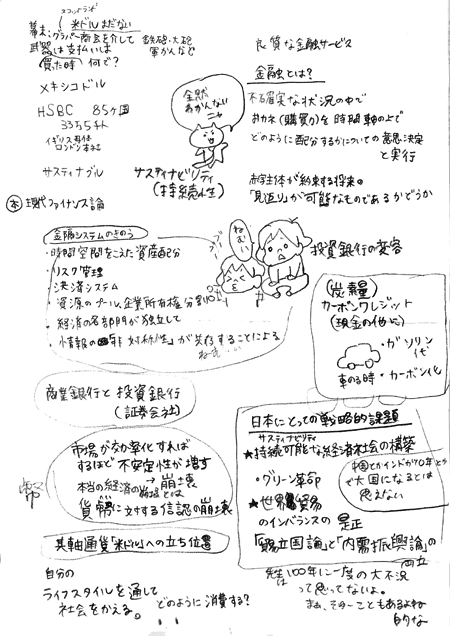 スコットランド
米ドルまだない
幕末:グラバー商会を介して
武器は支払いは
買った時 何で?
鉄砲・大砲
軍かんなど
メキシコドル
HSBC 85ヶ国
イギリス
ロンドン本社
サスティナブル
サスティナビリティ
(持続性)
全然
あかんない
良質な金融サービス
金融とは?
不確実な状況の中で
おカネ(購買力)を時間軸の上で
どのように配分するかについての意思決定
と実行
赤字主体が約束する将来の
「見返り」が可能なものであるかどうか
本 現代ファイナンス論
金融システムのきのう
・時間空間をこえた資産配分
・リスク管理
・決済システム
・資源のプール、企業所有権分割
・経済の各部門が独立して
・情報の「非対称性」が存することによる
ねむい
投資銀行の変容
(炭素量)
カーボンクレジット
(現金の他に)
・ガソリン
代
車のる時・カーボン代
商業銀行と投資銀行
(証券会社)
市場が効率化すれば
するほど不安定性が増す
本当の経済の崩壊
貨幣に対する信認の崩壊
基軸通貨「米ドル」への立ち位置
自分の
ライフスタイルを通して
社会をかえる。 どのように消費する?
日本にとっての戦略的課題
サスティナビリティ
★持続可能な経済社会の構築
・グリーン革命
中国とかインドが10年とか
で大国になるとは
思えない
★世界貿易
のインバランスの是正
「貿易立国論」と「内需振興論」の
両立
先生は100年に一度の大不況
って思ってないよ。
まぁ、そゆーこともあるよね
的な